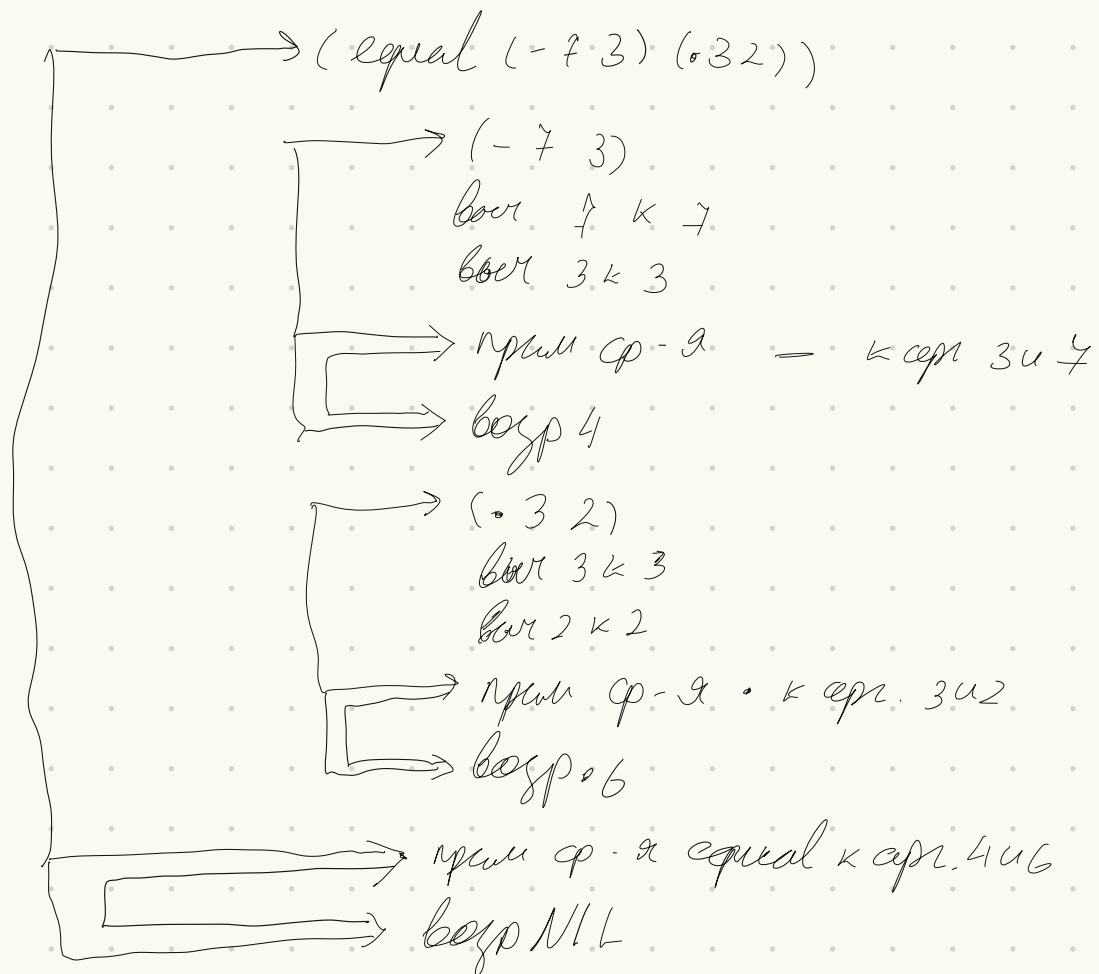 (equal (- 7 3) (· 3 2))
(- 7 3)
выч 7 к 7
выч 3 к 3
прим ф-я — к арг 3 и 7
возр 4
(· 3 2)
выч 3 к 3
выч 2 к 2
прим ф-я · к арг. 3 и 2
возр. 6
прим ф-я equal к арг. 4 и 6
возр NIL